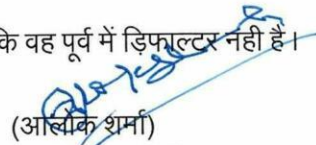 कि वह पूर्व में ड़िफाल्टर नही है।
(आलोक शर्मा)